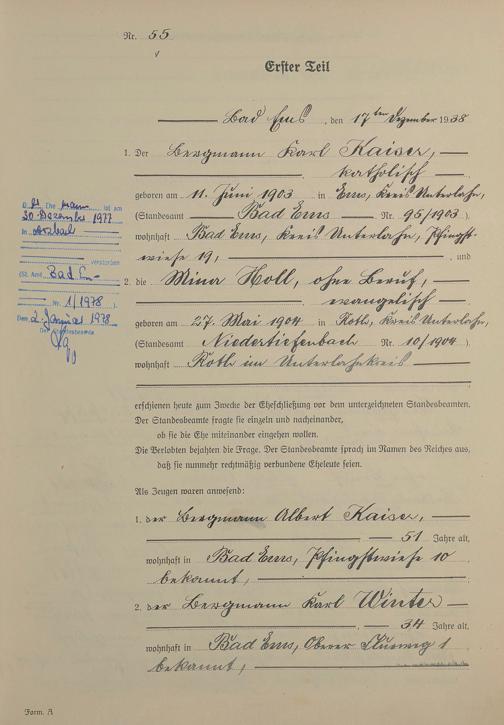 Nr. 55
Erster Teil
Bad Ems, den 17ten Dezember 1938
1. Der Bergmann Karl Kaiser,
katholisch
geboren am 11. Juni 1903 in Ems, Kreis Unterlahn,
(Standesamt Bad Ems Nr. 95/1903)
wohnhaft Bad Ems, Kreis Unterlahn, Pfingst-
wiese 19, und
2. die Mina Holl, ohne Beruf,
evangelisch
geboren am 27. Mai 1904 in Roth, Kreis Unterlahn,
(Standesamt Niedertiefenbach Nr. 10/1904)
wohnhaft Roth im Unterlahnkreis
erschienen heute zum Zwecke der Eheschließung vor dem unterzeichneten Standesbeamten.
Der Standesbeamte fragte sie einzeln und nacheinander,
ob sie die Ehe miteinander eingehen wollen.
Die Verlobten bejahten die Frage. Der Standesbeamte sprach im Namen des Reiches aus,
daß sie nunmehr rechtmäßig verbundene Eheleute seien.
Als Zeugen waren anwesend:
1. der Bergmann Albert Kaiser,
51 Jahre alt,
wohnhaft in Bad Ems, Pfingstwiese 10
bekannt,
2. der Bergmann Karl Winter
54 Jahre alt,
wohnhaft in Bad Ems, Oberer 1
bekannt,
Form. A
ist am
30. Dezember 1977
in Arzbach
verstorben
(St. Amt Bad Em
Nr. 1/1978 ).
Den 2. Januar 1978
Der Standesbeamte